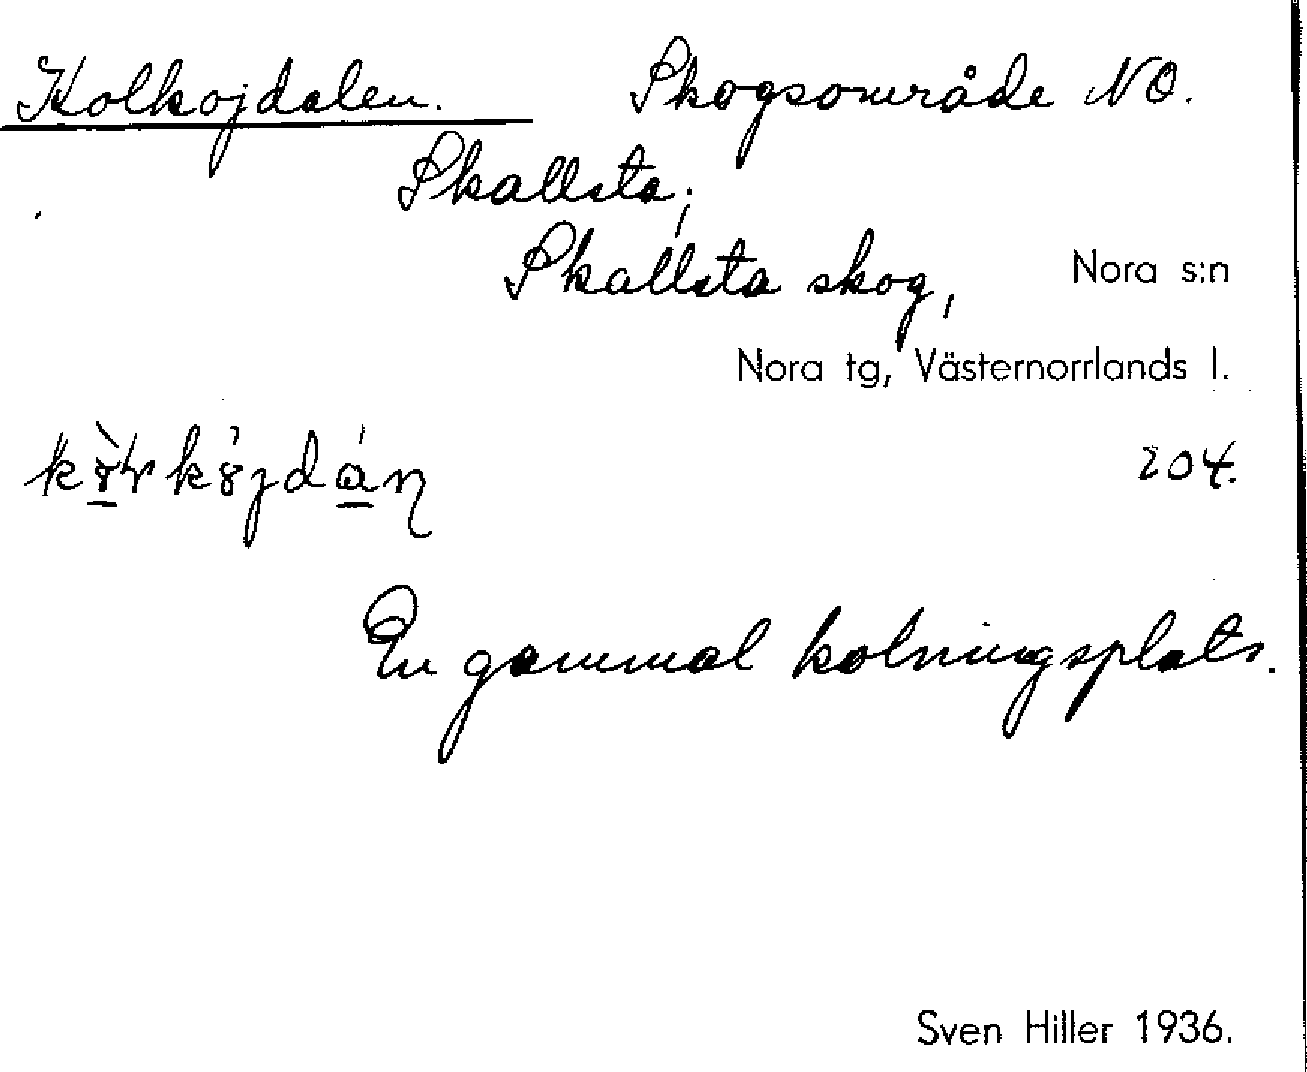 Kolkojdalen. Skogsområde NO.
Skallsta;
Skallsta skog, Nora s:n
Nora tg, Västernorrlands l.
204.
En gammal kolningsplats.
Sven Hiller 1936.